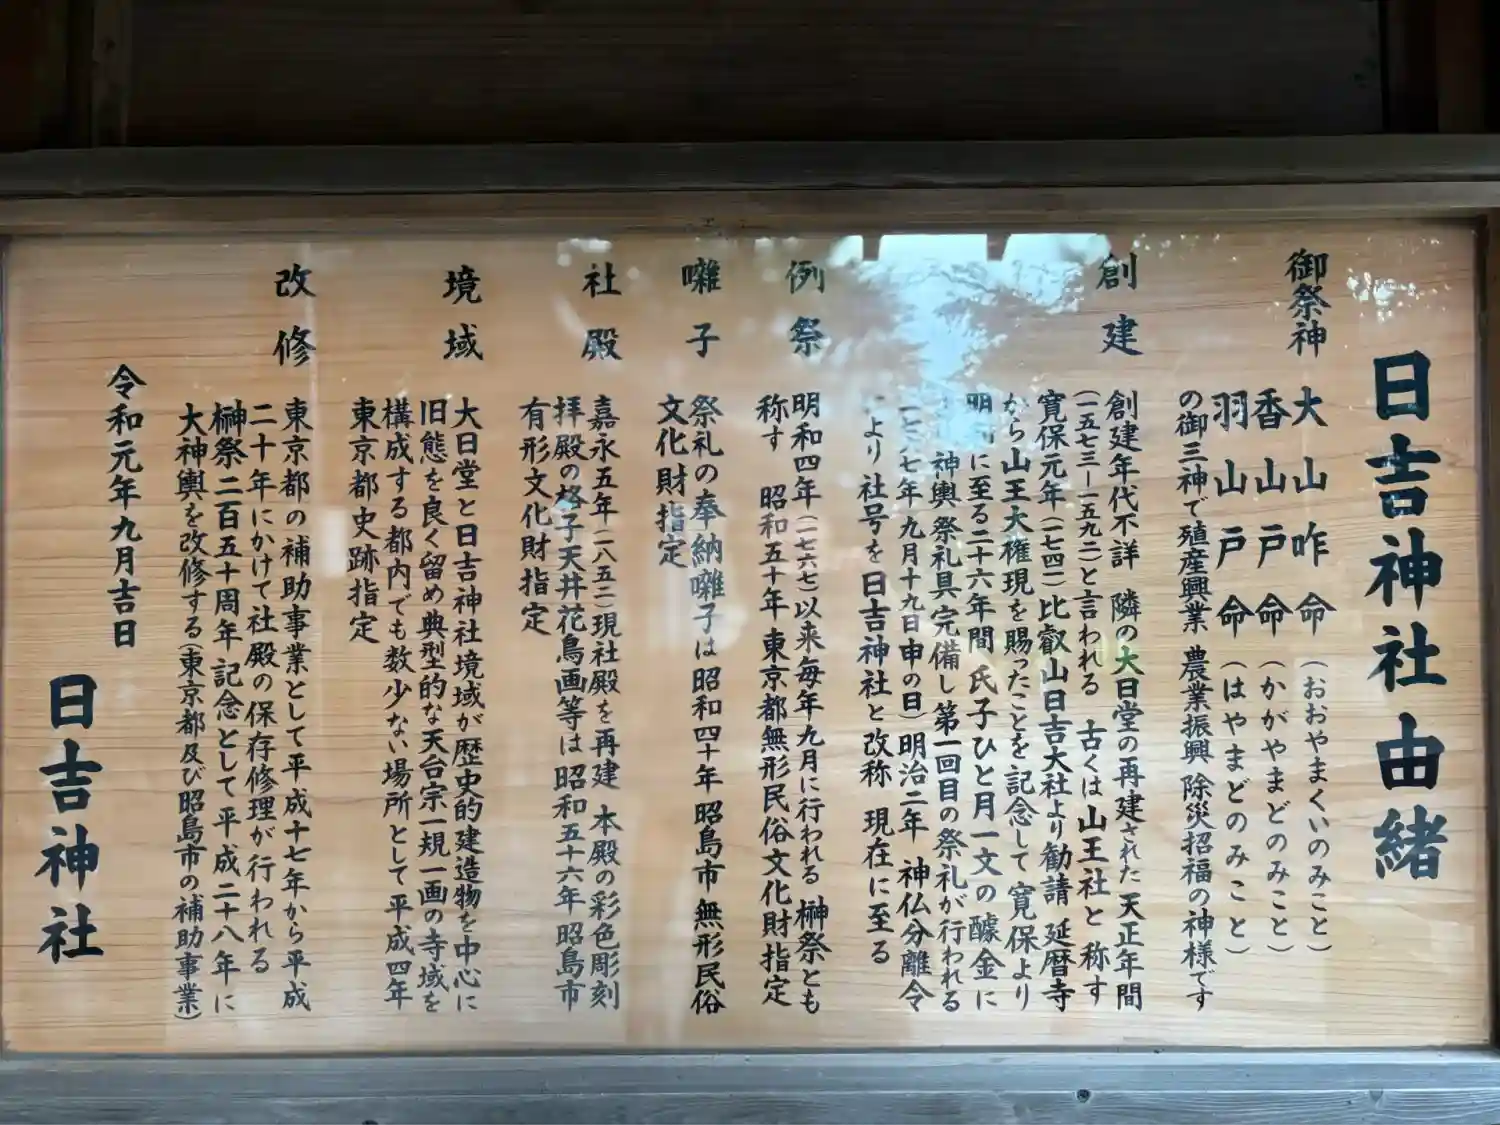 日吉神社由緒
御祭神
大山咋命(おおやまくいのみこと)
香山戸命(かがやまどのみこと)
羽山戸命(はやまどのみこと)
の御三神で殖産興業 農業振興 除災招福の神様です
創建
創建年代不詳 隣の大日堂の再建された天正年間
(一五七三ー一五九二)と言われる 古くは山王社と称す
寛保元年(一七四一)比叡山日吉大社より勧請 延暦寺
から山王大権現を賜ったことを記念して寛保より
明和に至る二十六年間 氏子ひと月一文の醵金に
神輿祭礼具完備し第一回目の祭礼が行われる
七年九月十九日申の日)明治二年 神仏分離令
により社号を日吉神社と改称 現在に至る
例祭
明和四年(一七六七)以来毎年九月に行われる 榊祭とも
称す 昭和五十年 東京都無形民俗文化財指定
囃子
祭礼の奉納囃子は昭和四十年 昭島市 無形民俗
文化財指定
社殿
嘉永五年(一八五二)現社殿を再建 本殿の彩色彫刻
拝殿の格子天井花鳥画等は昭和五十六年昭島市
有形文化財指定
境域
大日堂と日吉神社境域が歴史的建造物を中心に
旧態を良く留め典型的な天台宗一規一画の寺域を
構成する都内でも数少ない場所として平成四年
東京都史跡指定
改修
東京都の補助事業として平成十七年から平成
二十年にかけて社殿の保存修理が行われる
榊祭二百五十周年記念として平成二十八年に
大神輿を改修する(東京都及び昭島市の補助事業)
令和元年九月吉日
日吉神社